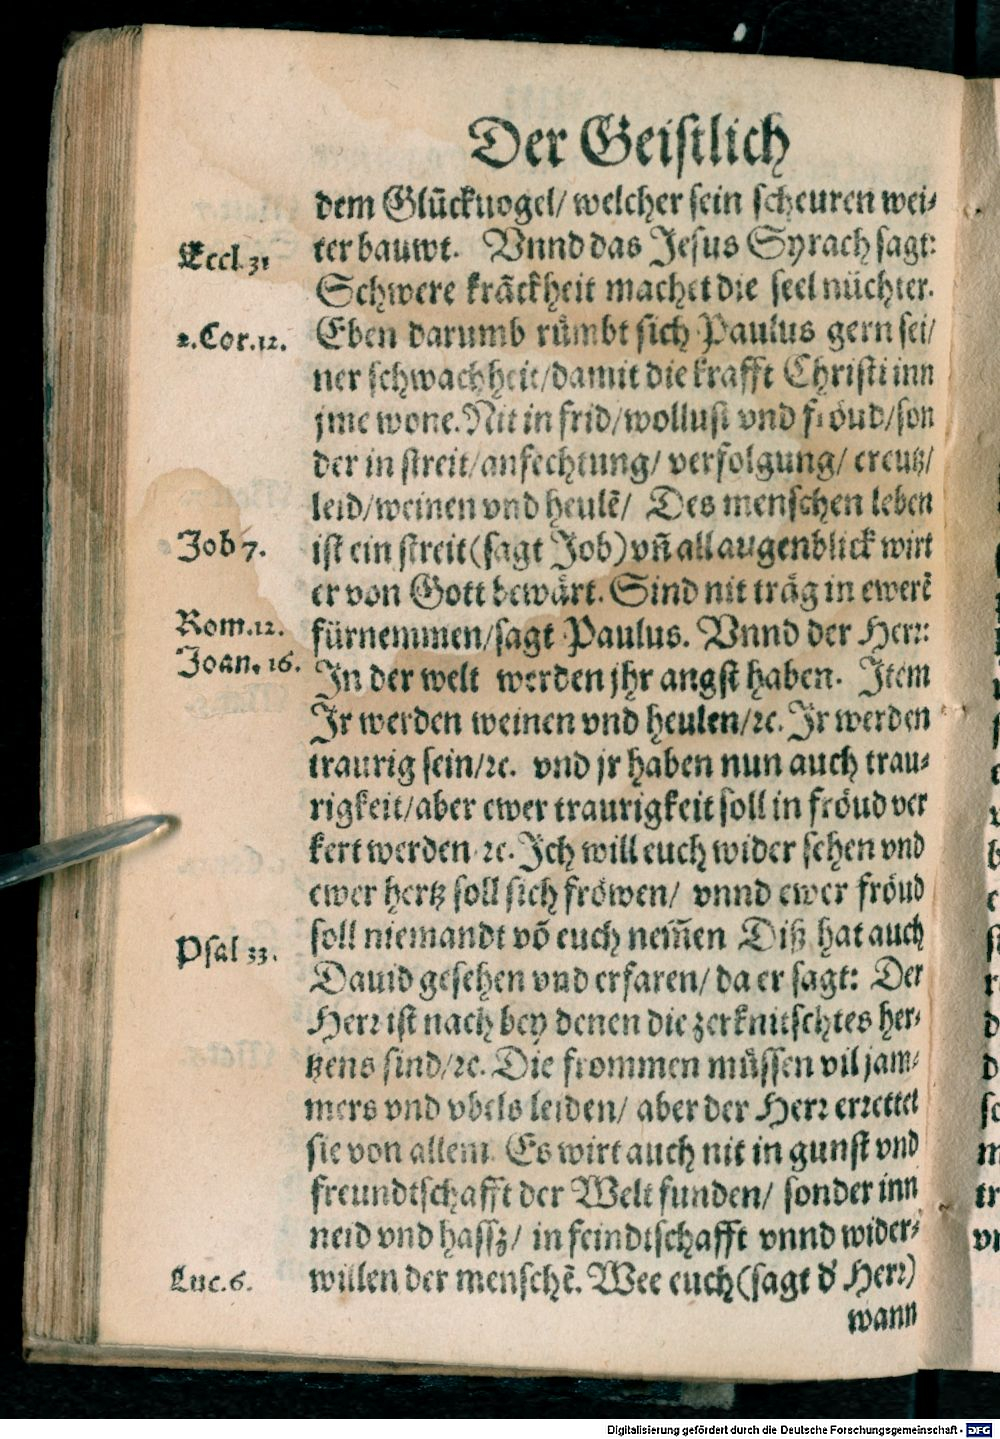 Der Geistlich
dem Glückuogel/ welcher sein scheuren wei-
ter bauwt. Vnnd das Jesus Syrach sagt:
Eccl. 31
Schwere krãckheit machet die seel nüchter.
Eben darumb rümbt sich Paulus gern sei/
2. Cor. 12.
ner schwachheit/ damit die krafft Christi inn
jme wone. Nit in frid/ wollust vnd fröud/ son
der in streit/ anfechtung/ verfolgung/ creutz/
leid/ weinen vnd heulẽ/ Des menschen leben
ist ein streit (sagt Job) vñ all augenblick wirt
Job 7.
er von Gott bewärt. Sind nit träg in ewerẽ
fürnemmen/ sagt Paulus. Vnnd der Herr:
Rom. 12.
Joan. 16.
In der welt werden jhr angst haben. Item
Ir werden weinen vnd heulen/ ꝛc. Ir werden
traurig sein/ ꝛc. vnd jr haben nun auch trau-
rigkeit/ aber ewer traurigkeit soll in fröud ver
kert werden ꝛc. Ich will euch wider sehen vnd
ewer hertz soll sich fröwen/ vnnd ewer fröud
soll niemandt võ euch nem̃en Diß hat auch
Psal 33.
Dauid gesehen vnd erfaren/ da er sagt: Der
Herr ist nach bey denen die zerknitschtes her-
tzens sind/ ꝛc. Die frommen müssen vil jam-
mers vnd vbels leiden/ aber der Herr errettet
sie von allem. Es wirt auch nit in gunst vnd
freundtschafft der Welt funden/ sonder inn
neid vnd hassz/ in feindtschafft vnnd wider-
willen der menschẽ. Wee euch (sagt d' Herr)
Luc. 6.
wann
Digitalisierung gefördert durch die Deutsche Forschungsgemeinschaft - DFG